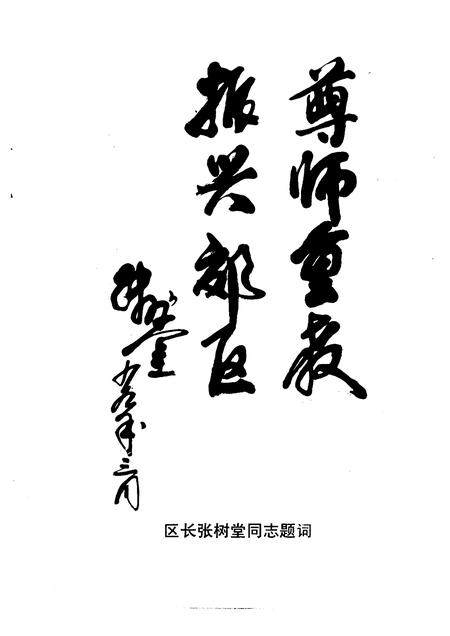 尊师重教
振兴郊区
张树堂
三月
区长张树堂同志题词